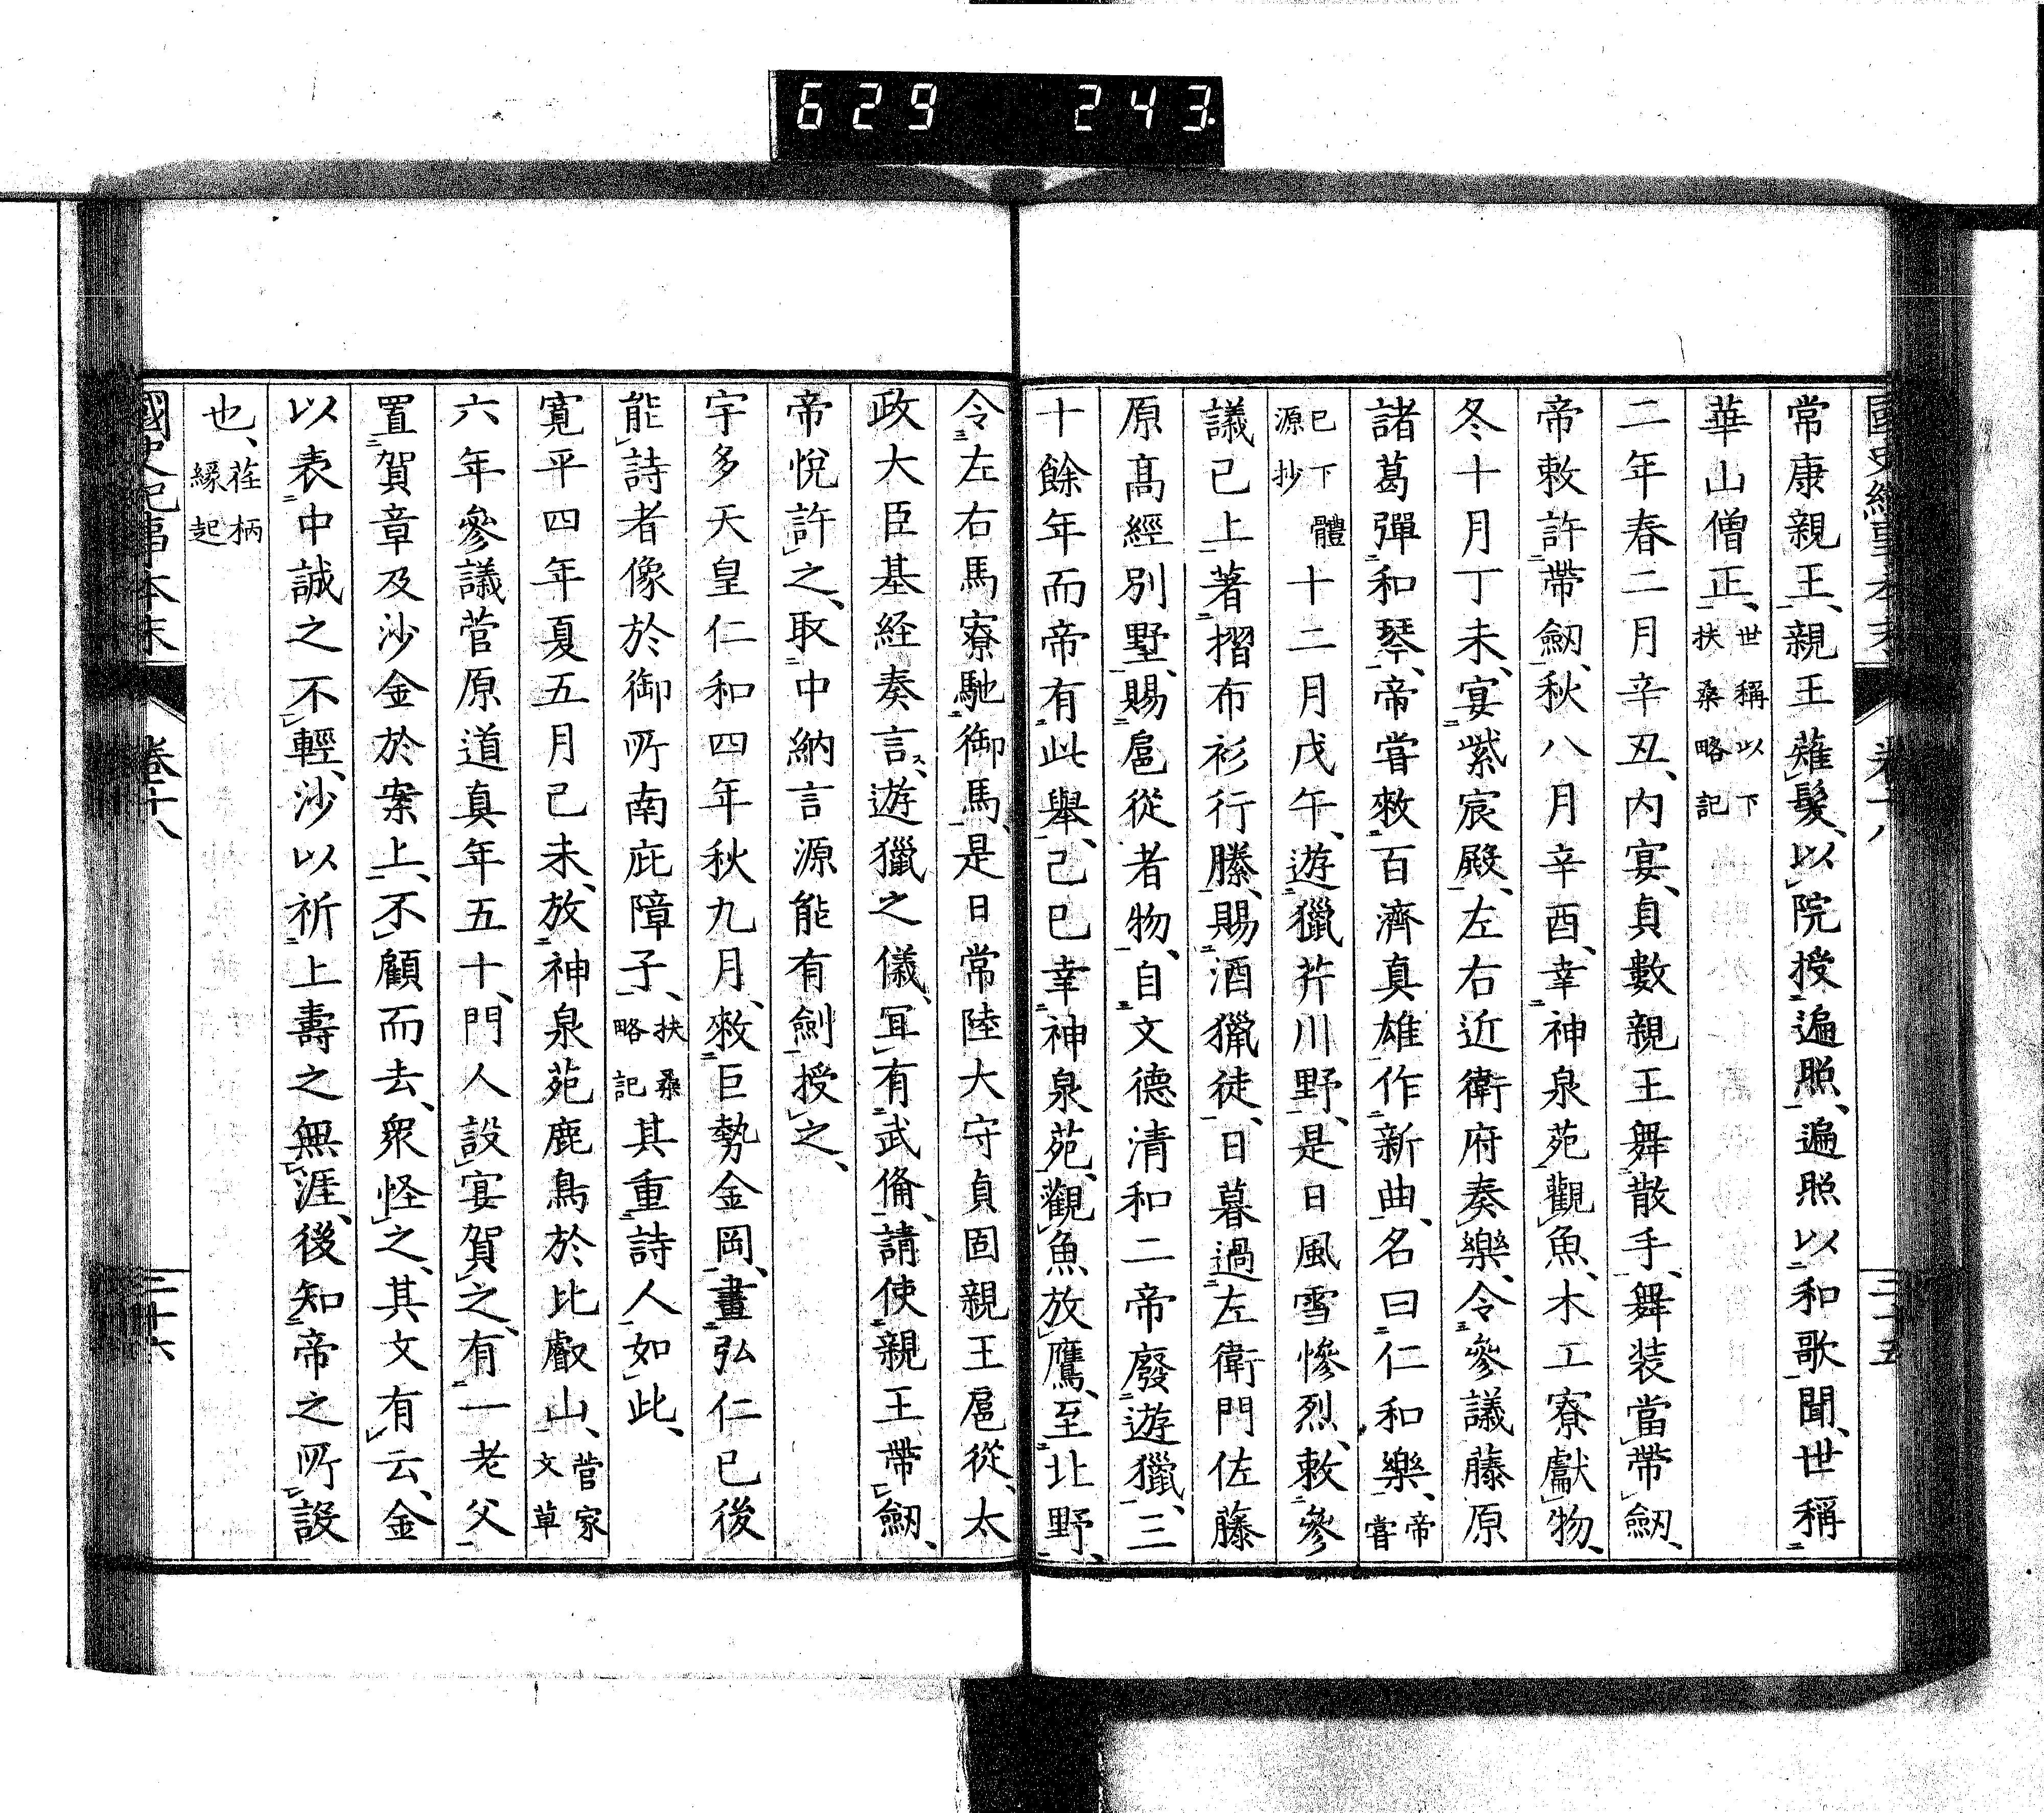 629 243
國史紀事本末 卷十八 三十五
常康親王、親王薙髮、以院授遍照、遍照以和歌聞、世稱
華山僧正、世稱以下扶桑略記
二年春二月辛丑、內宴、貞數親王舞散手、舞装當帶劒、
帝敕許帶劒、秋八月辛酉、幸神泉苑觀魚、木工寮獻物、
冬十月丁未、宴紫宸殿、左右近衛府奏樂、令參議藤原
諸葛彈和琴、帝嘗敕百濟真雄作新曲、名曰仁和樂、帝嘗
已下體源抄十二月戊午、遊獵芹川野、是日風雪慘烈、敕參
議已上著摺布衫行縢、賜酒獵徒、日暮過左衛門佐藤
原高經別墅、賜扈從者物、自文德清和二帝廢遊獵、三
十餘年而帝有此舉、己巳幸神泉苑、觀魚放鷹、至北野、
令左右馬寮馳御馬、是日常陸大守貞固親王扈從、太
政大臣基経奏言、遊獵之儀、冝有武俻、請使親王帶劒、
帝悅許之、取中納言源能有劍授之、
宇多天皇仁和四年秋九月、敕巨勢金岡、畫弘仁已後
能詩者像於御所南庇障子、扶桑略記其重詩人如此、
寬平四年夏五月己未、放神泉苑鹿鳥於比叡山、菅家文草
六年參議菅原道真年五十、門人設宴賀之、有一老父
置賀章及沙金於案上、不顧而去、衆怪之、其文有云、金
以表中誠之不輕、沙以祈上壽之無涯、後知帝之所設
也、荏柄緣起
國史紀事本末 卷十八 三十六